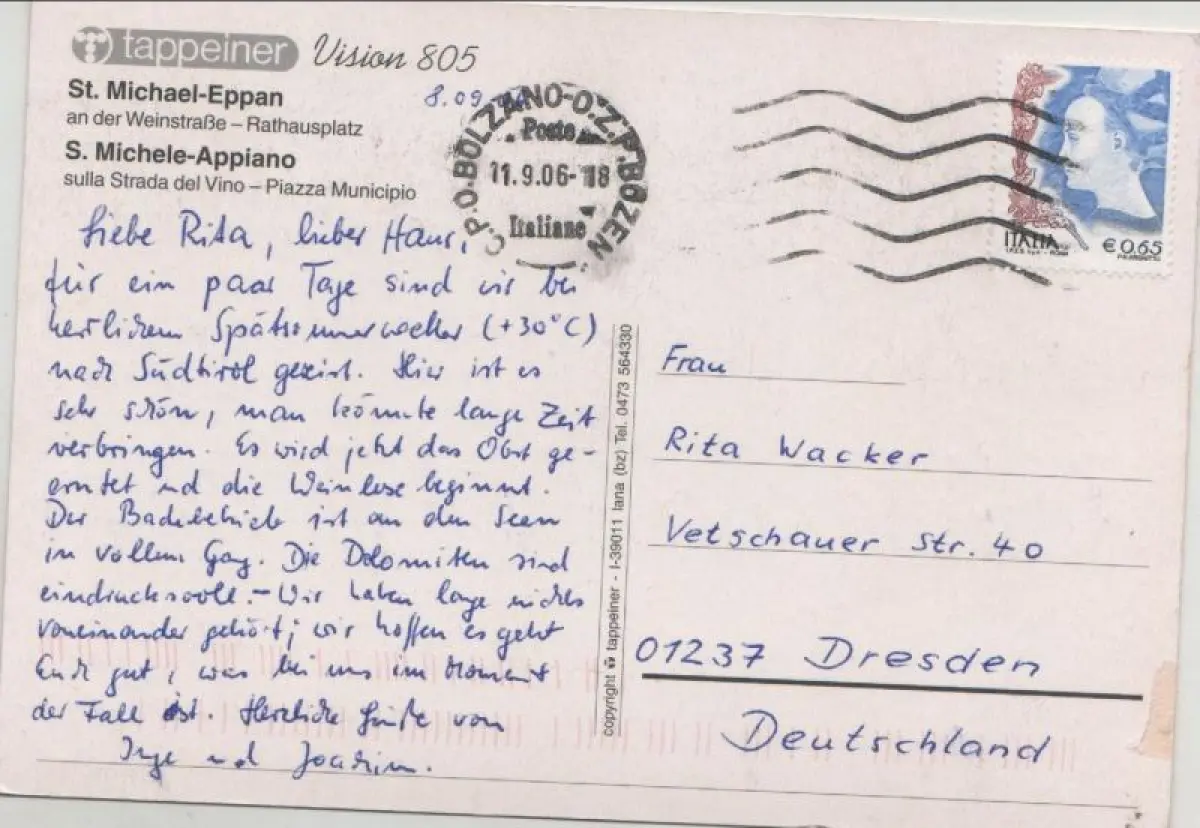 tappeiner Vision 805
St. Michael-Eppan
an der Weinstraße – Rathausplatz
S. Michele-Appiano
sulla Strada del Vino – Piazza Municipio
8.09.
C.P.O. BOLZANO-O.Z.P. BOZEN
Poste
11.9.06-18
Italiane
ITALIA
€ 0,65
Liebe Rita, lieber Hans,
für ein paar Tage sind wir bei
herrlichem Spätsommerwetter (+30°C)
nach Südtirol gereist. Hier ist es
sehr schön, man könnte lange Zeit
verbringen. Es wird jetzt das Obst ge-
erntet und die Weinlese beginnt.
Der Badebetrieb ist an den Seen
in vollem Gang. Die Dolomiten sind
eindrucksvoll. – Wir haben lange nichts
voneinander gehört; wir hoffen es geht
Euch gut, was bei uns im Moment
der Fall ist. Herzliche Grüße von
Inge und Joachim.
copyright tappeiner - I-39011 lana (bz) Tel. 0473 564330
Frau
Rita Wacker
Vetschauer Str. 40
01237 Dresden
Deutschland